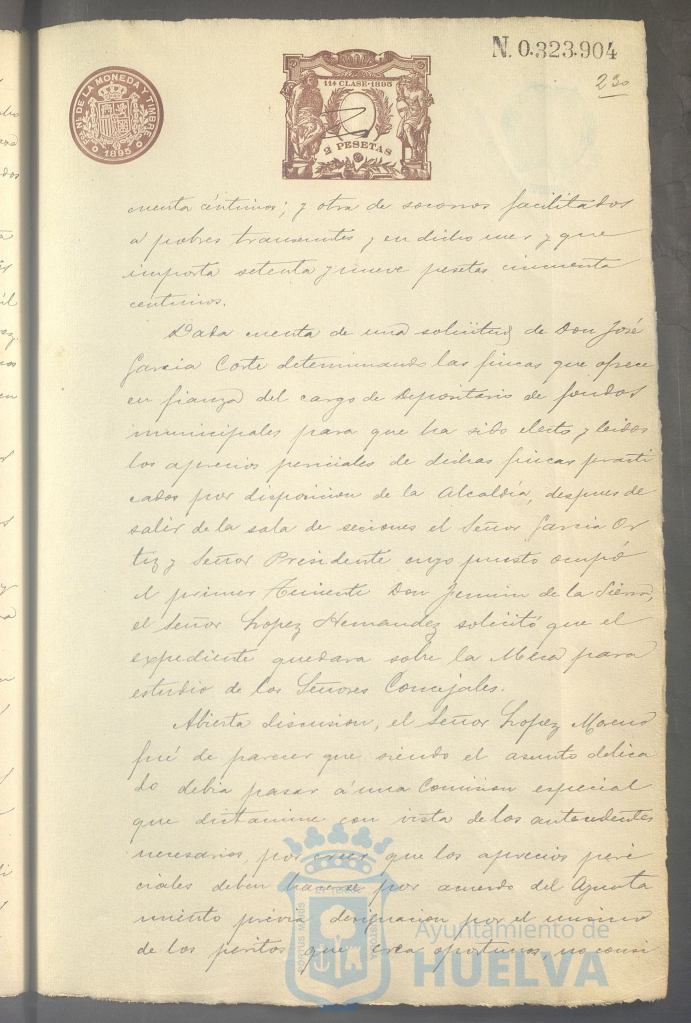 N. 0.323.904
FAB. NAL. DE LA MONEDA Y TIMBRE
1895
11ª CLASE-1895
2 PESETAS
230
cuenta céntimos; y otra de socorros facilitados
á pobres transeuntes, en dicho mes y que
importa setenta y nueve pesetas cincuenta
centimos.
Dada cuenta de una solicitud de Don José
Garcia Corte determinando las fincas que ofrece
en fianza del cargo de Depositario de fondos
municipales para que ha sido electo, y leidos
los aprecios periciales de dichas fincas practi
cados por disposicion de la Alcaldía, despues de
salir de la sala de seciones el Señor Garcia Or
tiz y Señor Presidente cuyo puesto ocupó
el primer Teniente Don Fermin de la Sierra,
el Señor Lopez Hernandez solicitó que el
expediente quedara sobre la Mesa para
estudio de los Señores Concejales.
Abierta discusion, el Señor Lopez Moreno
fué de parecer que siendo el asunto delica
do debia pasar á una Comision especial
que dictamine con vista de los antecedentes
necesarios, por creer que los aprecios peri
ciales deben hacerse por acuerdo del Ayunta
miento prévia designacion por el mismo
de los peritos que crea oportunos, no consi
PORTUS MARIS
CUSTODIA
Ayuntamiento de
HUELVA